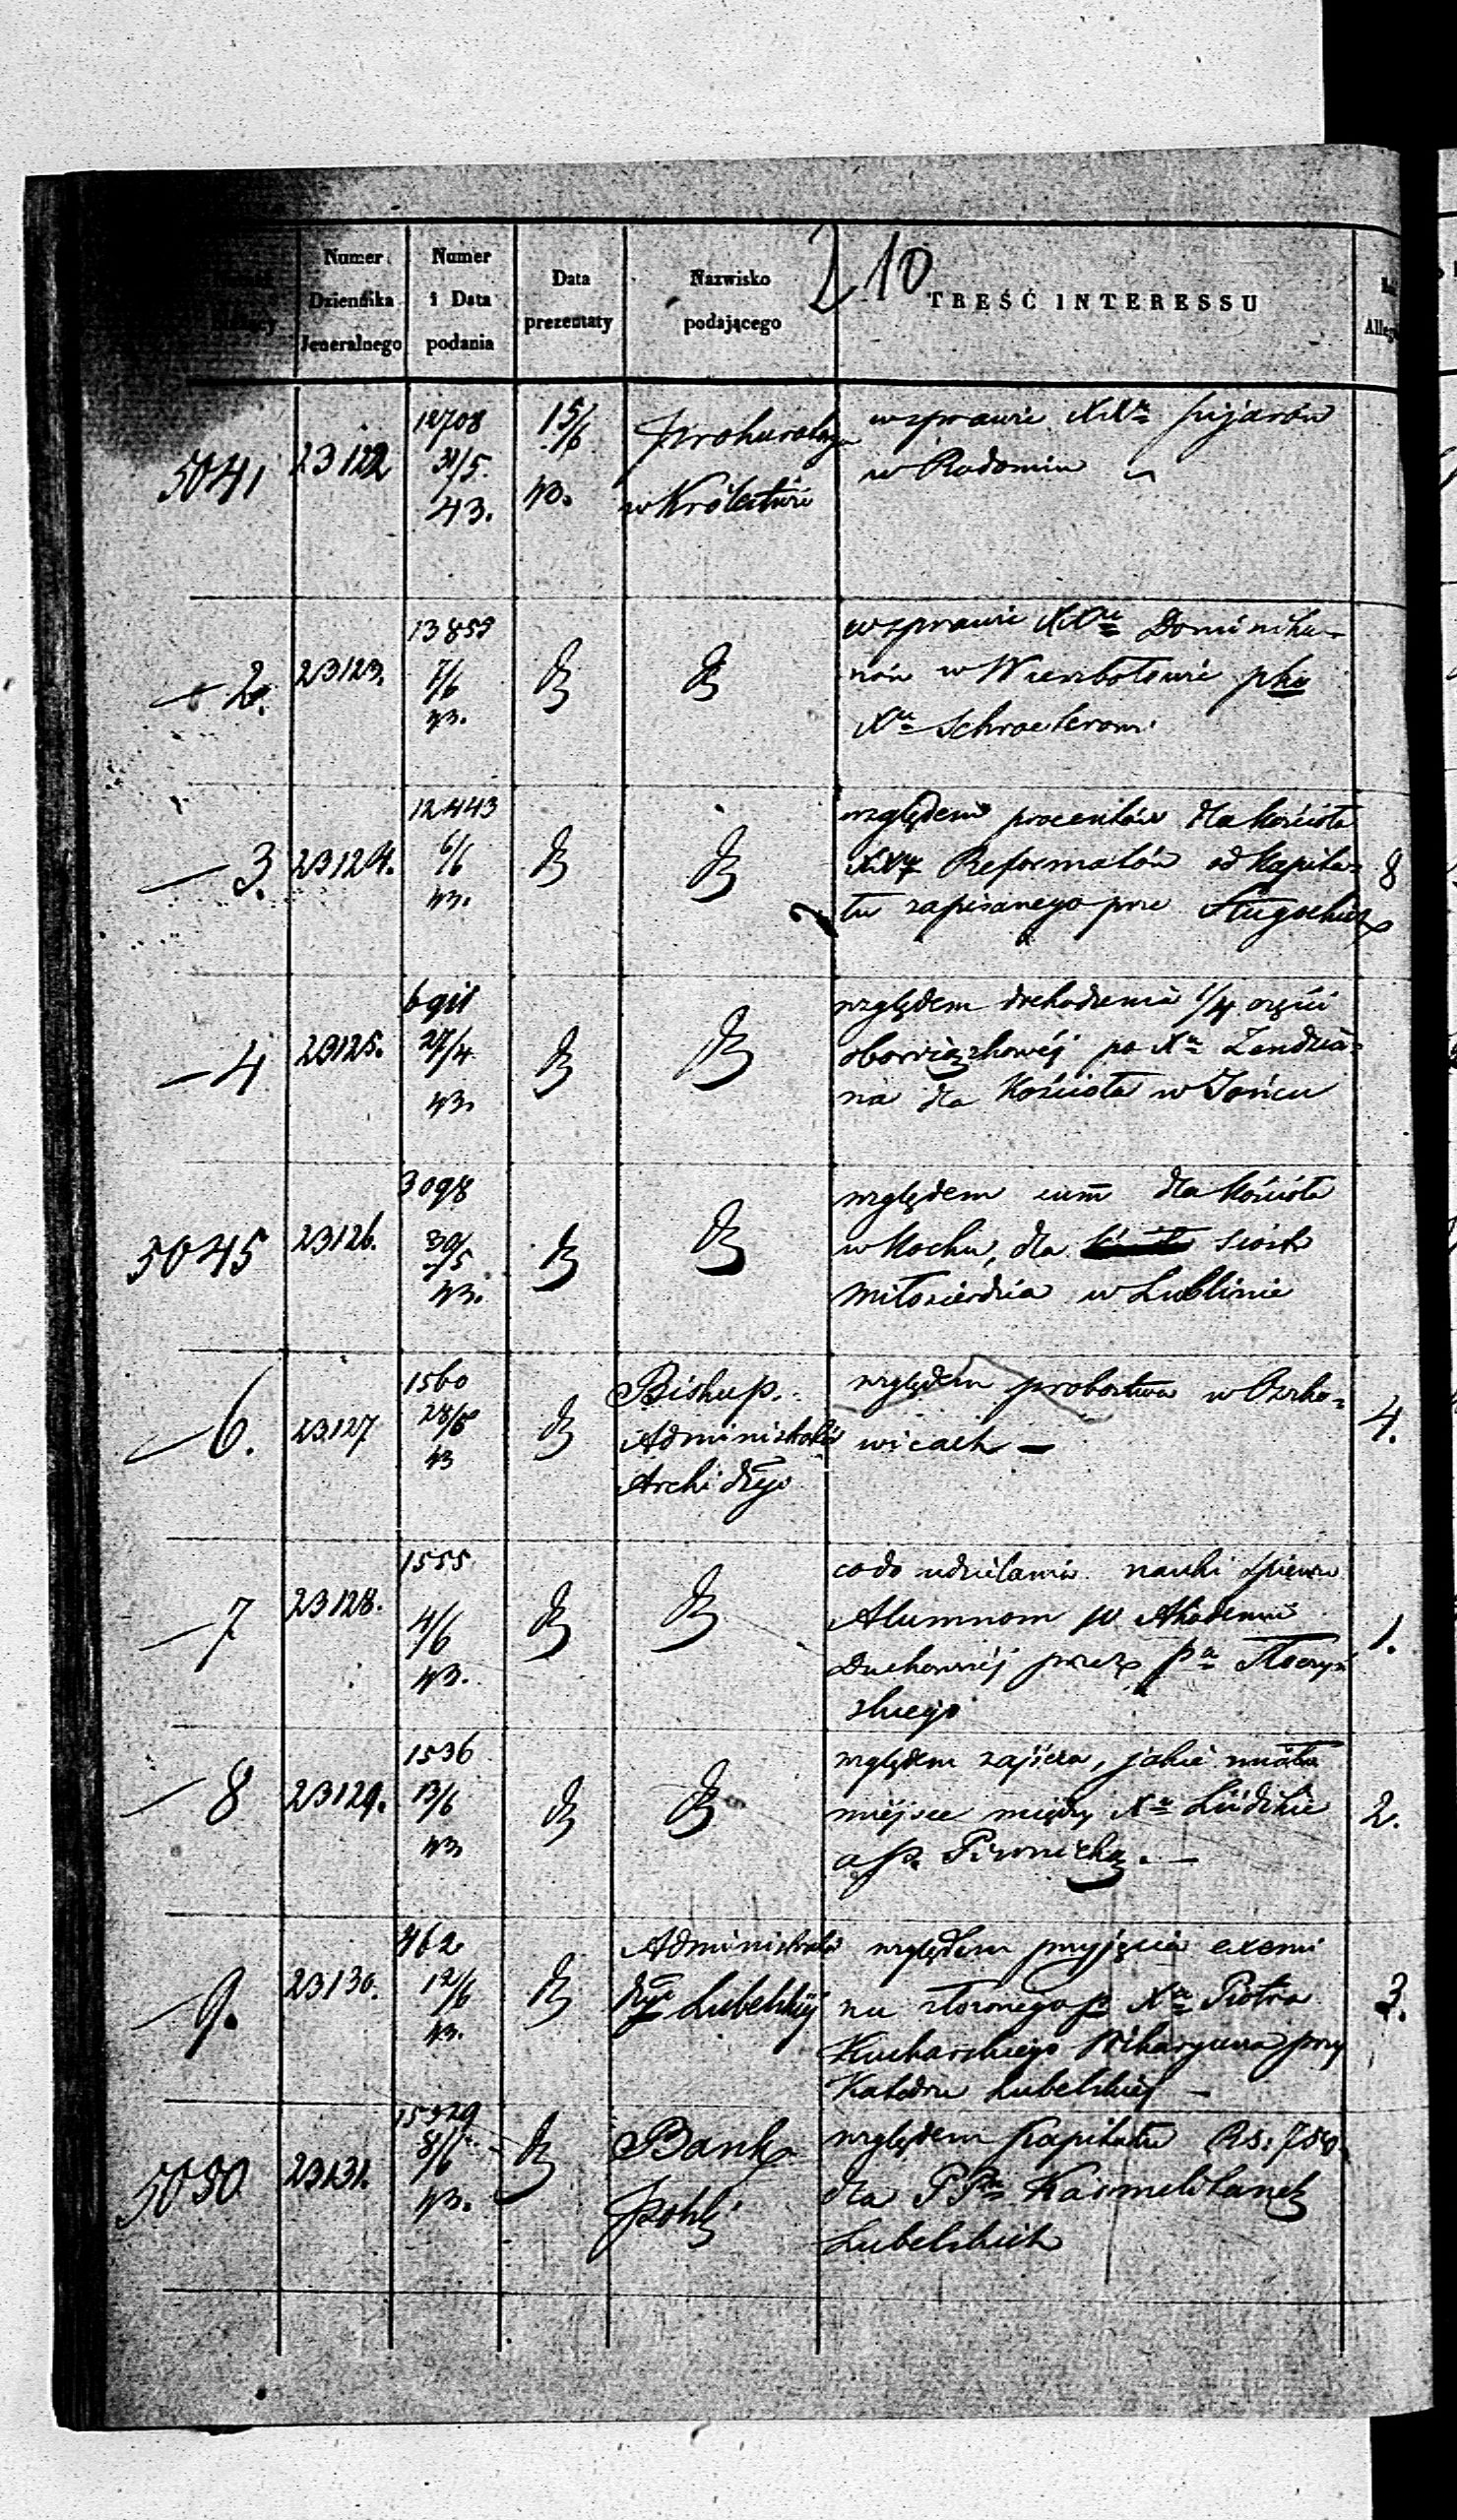 210
Numer Dziennika Jeneralnego
Numer i Data podania
Data prezentaty
Nazwisko podającego
TREŚĆ INTERESSU
5041
23122
12708
31/5.
43.
15/6
43.
Prokurato
w Królestwie
w sprawie XXrz Pijarów
w Radomiu
— 2.
23123.
13859
7/6
43.
w sprawie XXrz Dominika-
nów w Wierzbołowie pko
Xu Schroeterom
— 3.
23124.
12443
6/6
43.
względem procentów dla kościoła
Reformatów od Kapita-
łu zapisanego prze
8
— 4
23125.
27/4
43.
względem dochodzenia 1/4 części
obowiązkowej po Xu
na dla Kościoła w Jońcu
5045
23126.
3098
30/5
43.
względem summ dla Kościoła
w Kocku, dla Siostr
Miłosierdzia w Lublinie
— 6.
23127
1560
28/5
43
Biskup.
Administrator
Archi dyi
względem probostwa w Ozorko-
wicach —
4.
— 7
23128.
1555
4/6
43.
co do udzielania nauki śpiewu
Alumnom w Akademii
Duchownej przez Pa
skiego
1.
— 8
23129.
1536
13/6
43
względem zajścia, jakie miało
miejsce między Xu
a p. Piwnicką. —
2.
— 9.
23130.
462
12/6
43.
Administrator
dyi Lubelskiej
względem przyjęcia exemi
nu złożonego p Xa Piotra
Kucharskiego Wikaryusza przy
Katedrze Lubelskiej —
3.
5050
23131.
15329
8/6
43.
Bank
Polski
względem Kapitału Rs. 750
dla PP Karmelitanek
Lubelskich